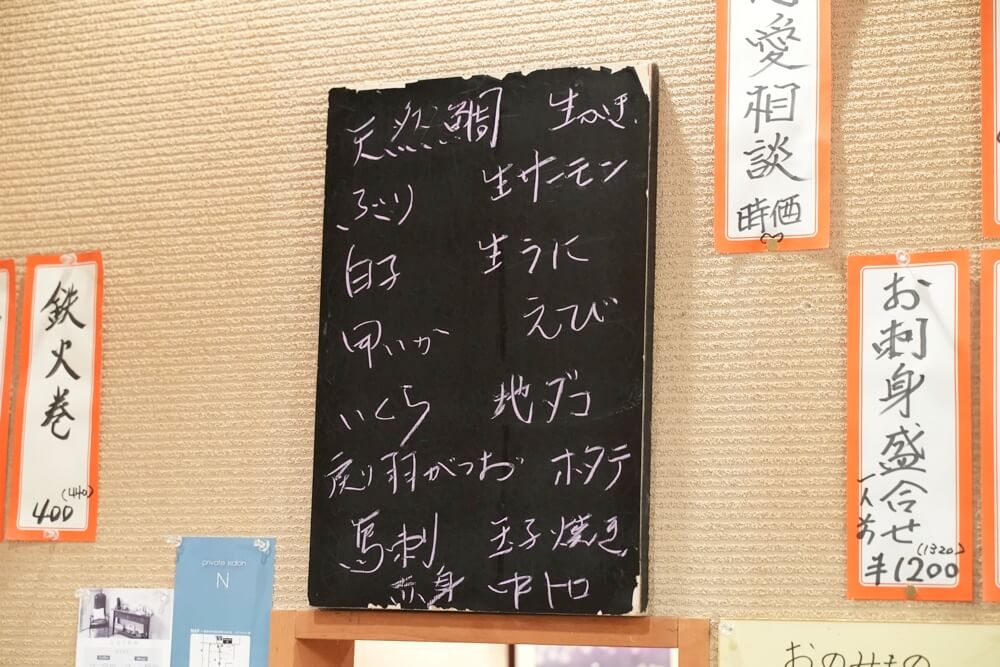 天然鯛 生かき
ぶり 生サーモン
白子 生うに
甲いか えび
いくら 地ダコ
戻り羽がつお ホタテ
馬刺 玉子焼き
赤身 中トロ
鉄火巻
(440)
400
愛相談
時価
お刺身盛合せ
一人前
(1320)
¥1200
private salon
N
おのみもの